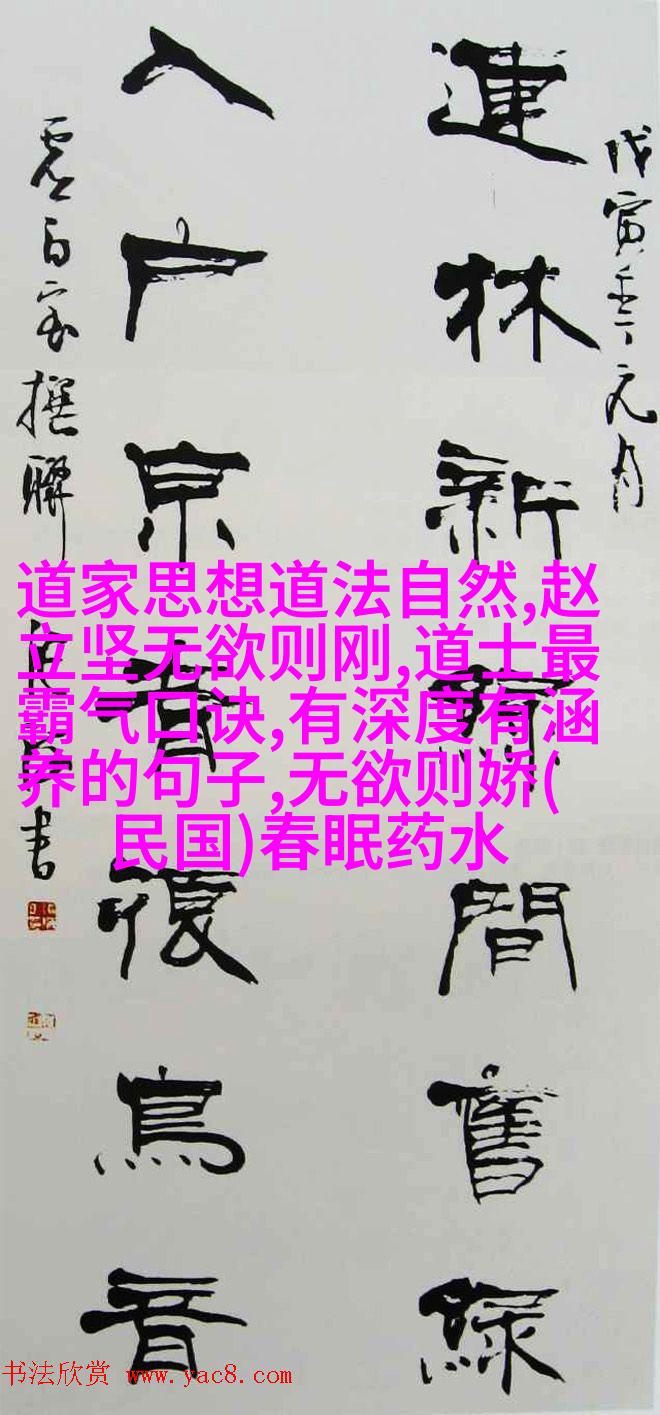 戊寅年元月
連林新綠間舊綠
入户京音鳥音
百家撰聯 書
道家思想道法自然,赵
立坚无欲则刚,道士最
霸气口诀,有深度有涵
养的句子,无欲则娇(
民国)春眠药水
书法欣赏 www.yac8.com